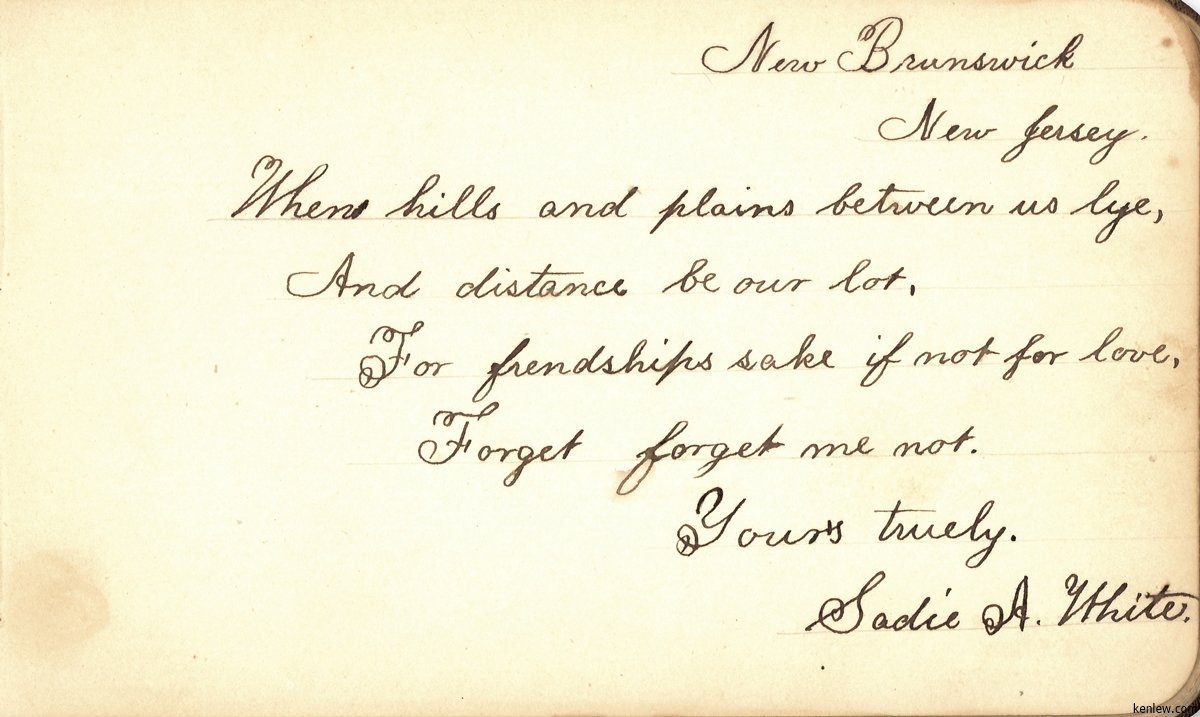 New Brunswick
New Jersey.
When hills and plains between us lye,
And distance be our lot,
For frendships sake if not for love,
Forget forget me not.
Yours truely.
Sadie A. White.
kenlew.com